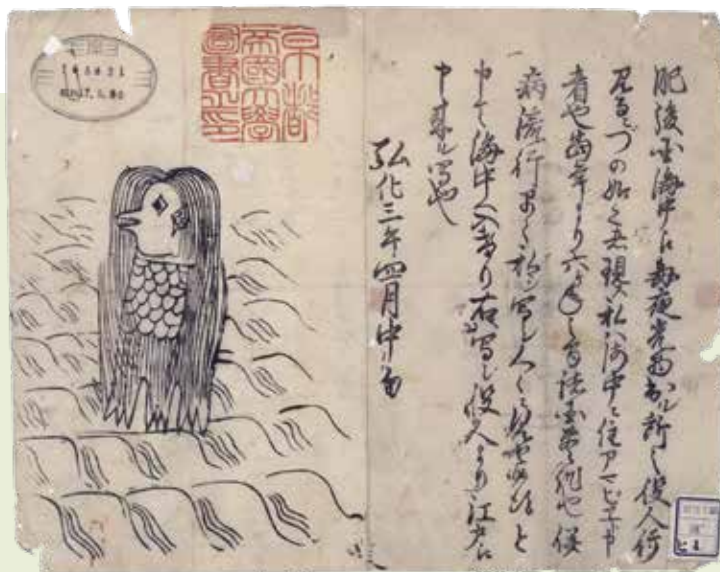 肥後国海中江毎夜光物出ル所之役人行
見るニづの如く者現ス私ハ海中ニ住アマビヱト申
者也当年より六ヶ年之間諸国豊作也併
病流行早々私シ写シ人々ニ見セ候得と
申て海中へ入けり右写シ役人より江戸江
申来ル写也
弘化三年四月中旬
京都
帝國大學
圖書之印